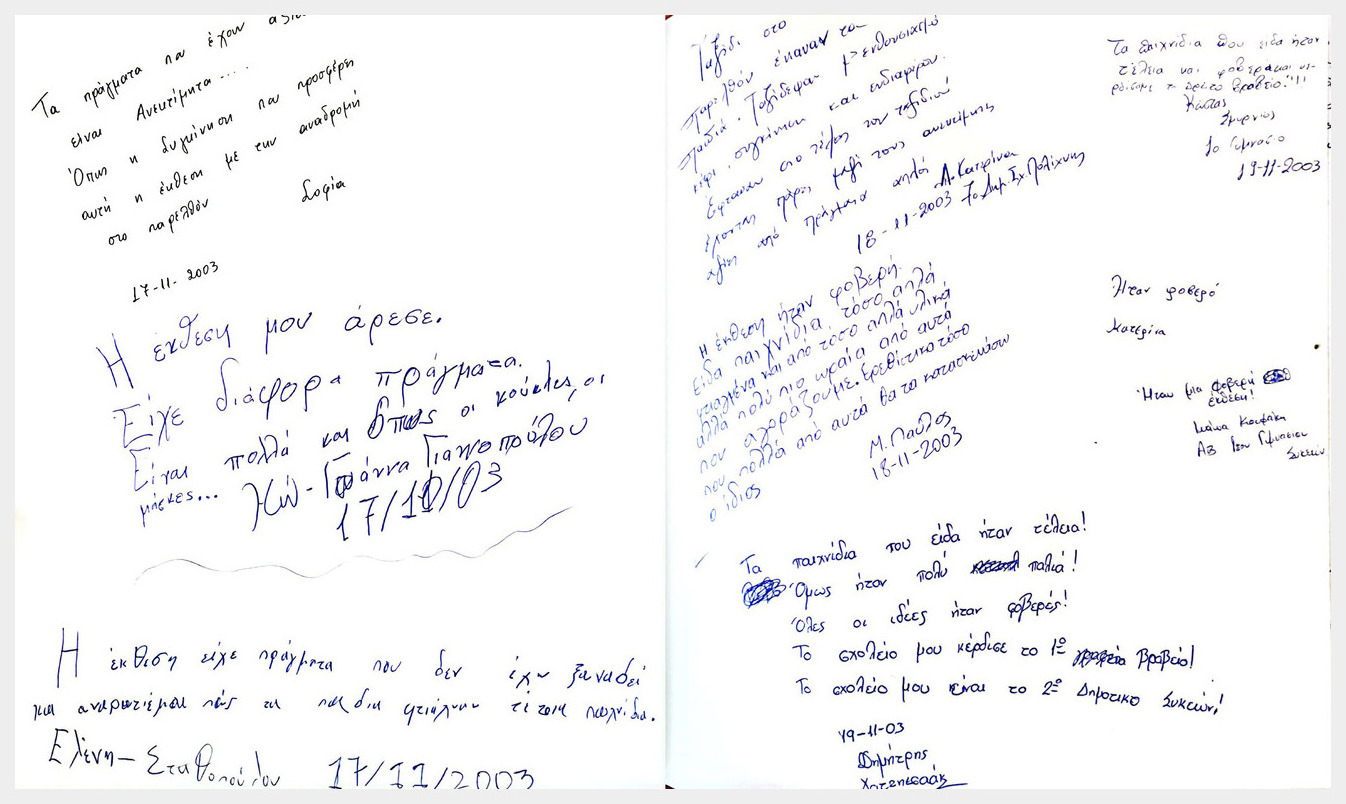 Τα πράγματα που έχουν αξία
είναι Ανεκτίμητα....
Όπως η συγκίνηση που προσφέρει
αυτή η έκθεση με την αναδρομή
στο παρελθόν
Σοφία
17-11-2003
Η έκθεση μου άρεσε.
Είχε διάφορα πράγματα.
Είναι πολλά και όπως οι κούκλες, οι
μάσκες...
Γιαννοπούλου
17/11/03
Η έκθεση είχε πράγματα που δεν έχω ξαναδεί
και αναρωτιέμαι πώς τα παιδια φτιάχναν τέτοια παιχνίδια.
Ελένη - Σταθοπούλου 17/11/2003
Ταξίδι στο
παρελθόν έκαναν τα
παιδιά. Ταξίδεψαν μ' ενθουσιασμό
κέφι, συγκίνηση και ενδιαφέρον.
Έφτασαν στο τέλος του ταξιδιού
έχοντας πάρει μαζί τους ανεκτίμητης
αξίας από πράγματα απλά
Α. Κατερίνα
18-11-2003 7ο Δημ. Σχ. Πολίχνης
Η έκθεση ήταν φοβερή.
Είδα παιχνίδια τόσο απλά
φτιαγμένα και από τόσο απλά υλικά
αλλά πολύ πιο ωραία από αυτά
που αγοράζουμε. Ερεθίστικα τόσο
που πολλά από αυτά θα τα κατασκευάσω
ο ίδιος
Μ. Παύλος
18-11-2003
Τα παιχνίδια που είδα ήταν τέλεια!
Όμως ήταν πολύ παλιά!
Όλες οι ιδέες ήταν φοβερές!
Το σχολείο μου κέρδισε το 1ο βραβείο!
Το σχολείο μου είναι το 2ο Δημοτικο Συκεών!
19-11-03
Δημήτρης
Τα παιχνίδια που ειδα ήταν
τέλεια και φοβερα και κε-
ρδίσαμε το πρώτο βραβείο!!!
Κώστας
Σμυρνιός
1ο Γυμνασιο
19-11-2003
Ήταν φοβερό
Κατερίνα
Ήταν μια φοβερή
έκθεση!
1ου Γυμνασιου
Συκεών